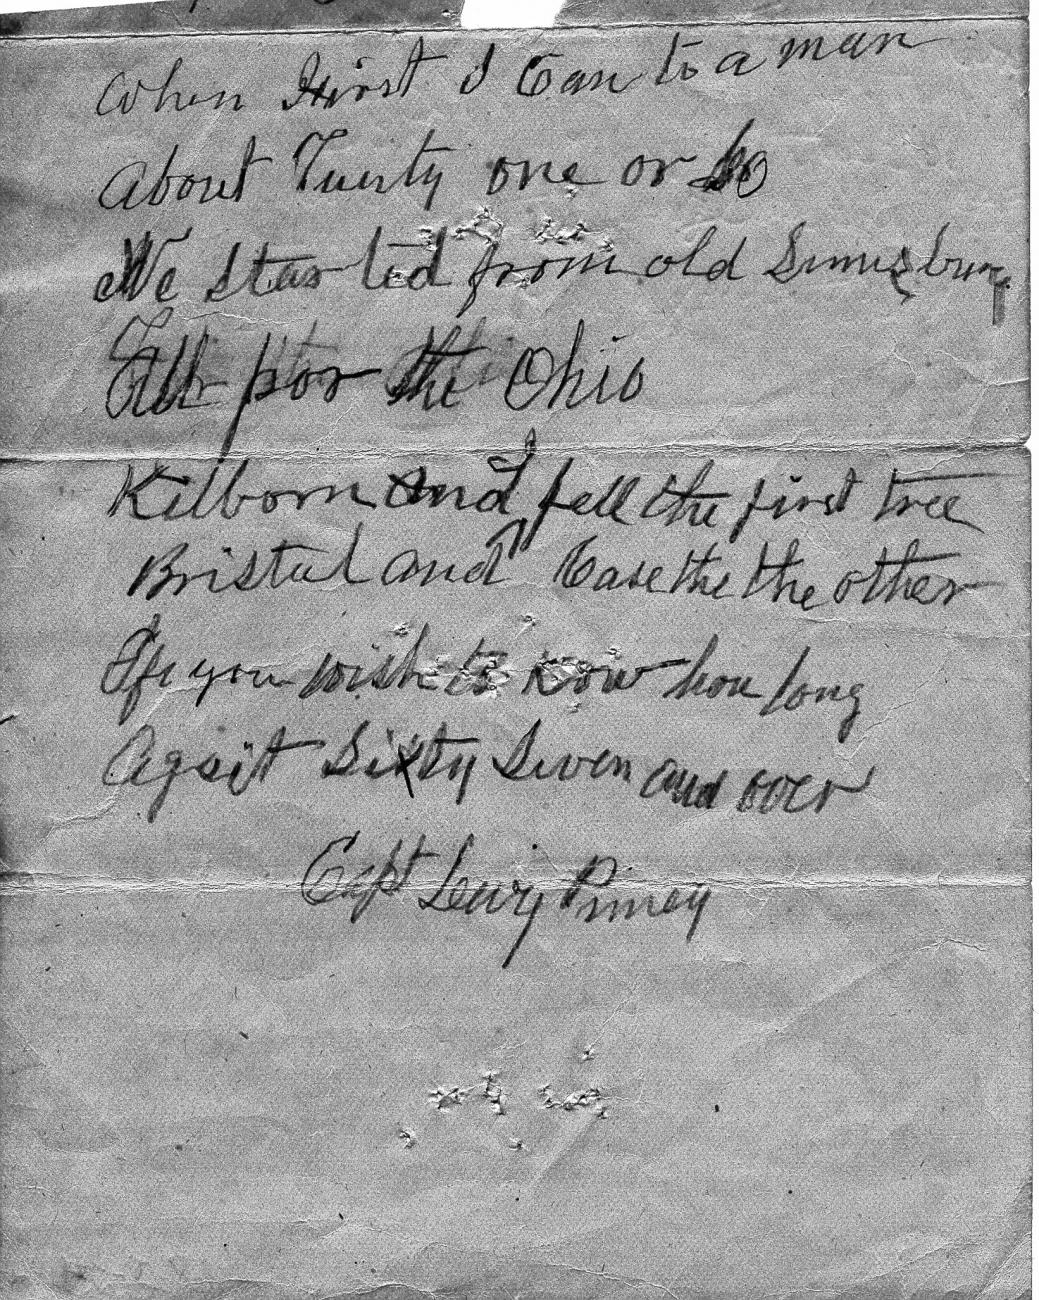 When First I Cam to a man
About Twenty one or so
We started from old Simisbury
All for the Ohio
Kilborn and I fell the first tree
Bristul and Case the the other
Ife you wish to know hou long
Agoit Sixty Seven and over
Capt Levi Piney